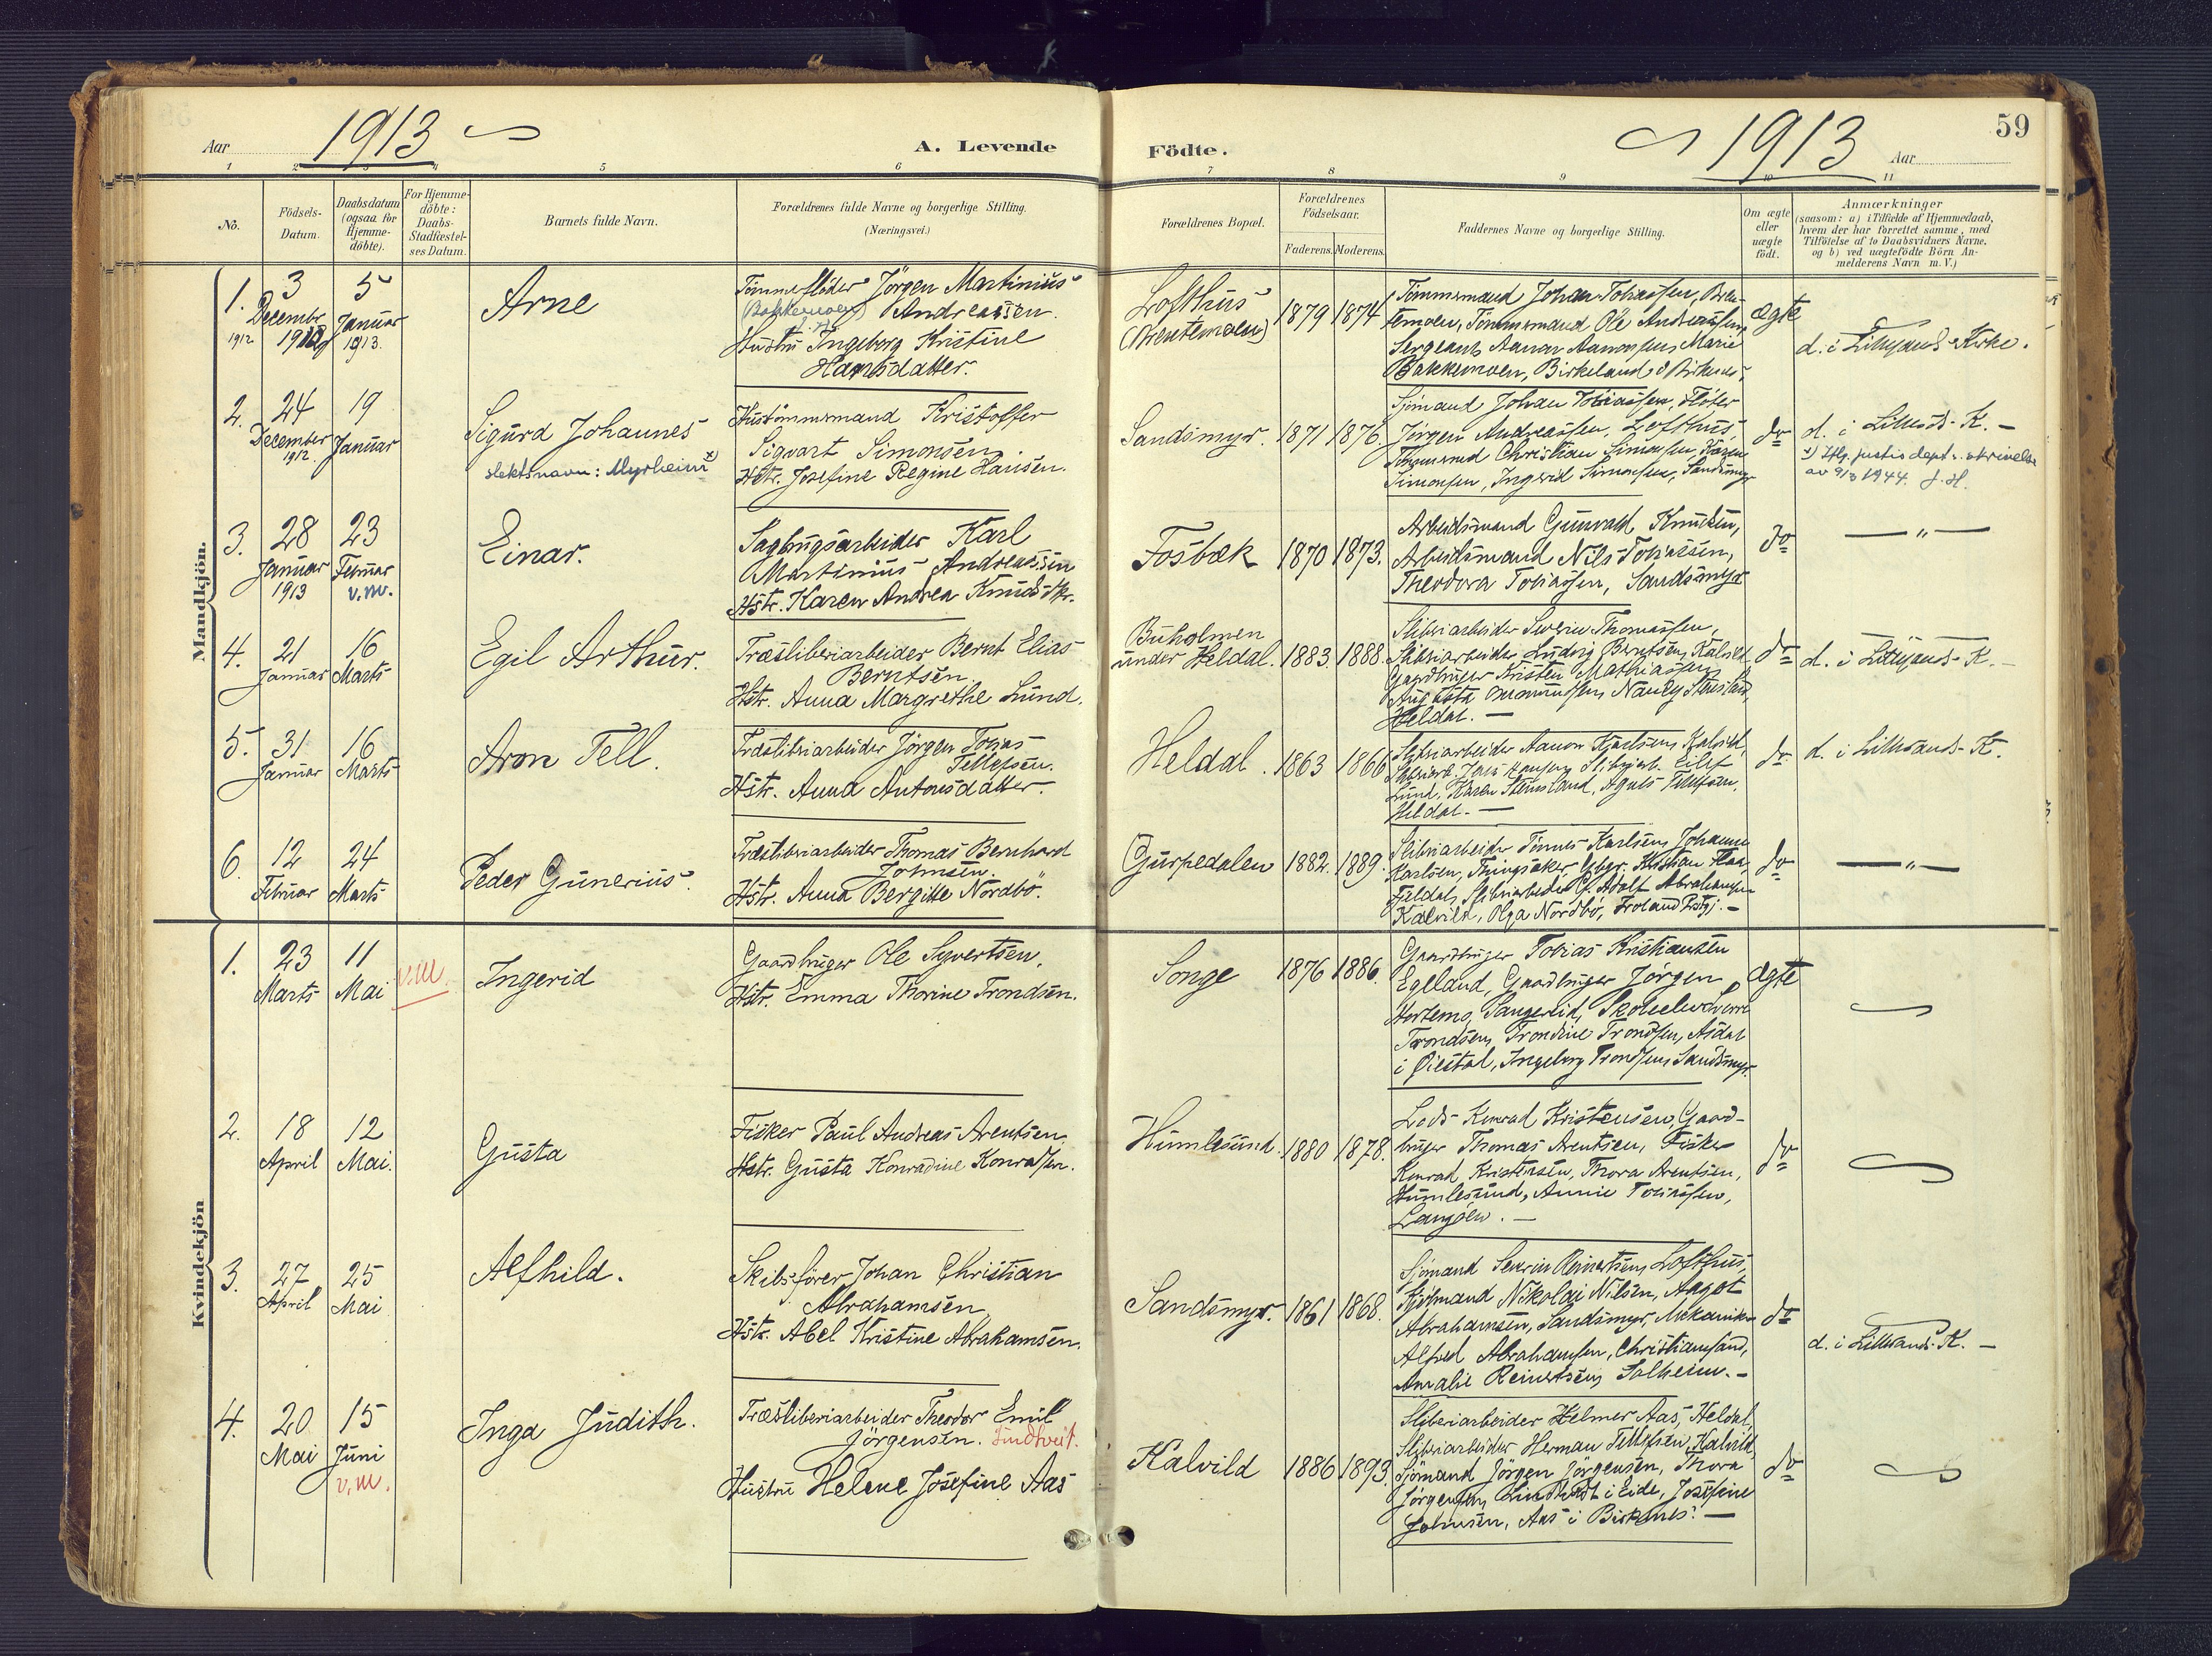 Aar 1913
A. Levende
Födte.
1913 Aar
59
1 2 3 4 5 6
7 8 9 10 11
No.
Födsels-
Datum.
Daabsdatum
(ogsaa for
Hjemme-
döbte).
For Hjemme-
döbte:
Daabs-
Stadfæstel-
ses Datum.
Barnets fulde Navn.
Forældrenes fulde Navne og borgerlige Stilling.
(Næringsvei.)
Forældrenes Bopæl.
Forældrenes
Födselsaar.
Faderens. Moderens.
Faddernes Navne og borgerlige Stilling.
Om ægte
eller
uægte
födt.
Anmærkninger
(saasom: a) i Tilfælde af Hjemmedaab,
hvem der har forrettet samme, med
Tilföielse af to Daabsvidners Navne,
og b) ved uægtefödte Börn An-
melderens Navn m. V.)
Mandkjön.
1.
3
December
1912
5
Januar
1913.
Arne
Tömmerflöder Jörgen Martinius
(Bakkemoen) Andreassen.
Hustru Ingeborg Kristine
Hansdatter.
Lofthus
(Brentemoen)
1879 1874
Tömmermand Johan Tobiassen, Bren-
temoen, Tömmermand Ole Andreassen,
Sergeant Aanon Aanonsen, Marie
Bakkemoen, Birkeland i Birkenes.
ægte
d. i Lillesands Kirke.
2.
24
December
1912.
19
Januar
Sigurd Johannes
slektsnavn: Myrheim x)
Hustömmermand Kristoffer
Sigvart Simonsen
Hstr. Josefine Regine Hansen.
Sandsmyr.
1871 1876.
Sjömand Johan Tobiassen, Flöder
Jörgen Andreassen, Lofthus,
Tömmermd Christian Simonsen, Karen
Simonsen, Ingerid Simonsen, Sandsmyr
do
d. i Lillesds K. —
x) Iflg. justis dept.s skrivelse
av 9/3 1944. J. H.
3.
28
Januar
1913
23
Februar
v.m.
Einar.
Sagbrugsarbeider Karl
Martinius Andreassen
Hstr. Karen Andrea Knudsdtr.
Fosbæk
1870 1873.
Arbeidsmand Gunvald Knudsen,
Arbeidsmand Nils Tobiassen,
Theodora Tobiassen, Sandsmyr
do
— " —
4.
21
Januar
16
Marts
Egil Arthur.
Træsliberiarbeider Bernt Elias
Berntsen.
Hstr. Anna Margrethe Lund.
Buholmen
under Heldal.
1883. 1888.
Sliberiarbeider Severin Thomassen,
Sliberiarbeider Ludvig Berntsen, Kalvild,
Gaardbruger Kristen Mathiassen,
Augusta Omundsen, Nancy Stensland,
Heldal. —
do
d. i Lillesands K. —
5.
31
Januar
16
Marts
Aron Tell.
Træsliberiarbeider Jörgen Tobias
Tellefsen.
Hstr. Anna Antonsdatter.
Heldal.
1863 1866
Sliberiarbeider Aanon Kjærlsen, Kalvild,
Lund, Karen Stensland, Agnes Tellefsen,
Heldal. —
do
d. i Lillesands K.
6.
12
Februar
24
Marts
Peder Gunerius.
Træsliberiarbeider Thomas Bernhard
Johnsen.
Hstr. Anna Bergitte Nordbö.
Gurpedalen
1882. 1889.
Sliberiarbeider Tönnes Karlsen, Johanne
Karlsen, Tingsaker, Gbgr. Kristian Flaa,
Fjeldal, Sliberiarbeider G. Adolf Abrahamsen
Kalvild, Olga Nordbö, Froland Prstgj. —
do
— " —
Kvindekjön
1.
23
Marts
11
Mai
v.m.
Ingerid
Gaardbruger Ole Syvertsen.
Hstr. Emma Thorine Trondsen.
Songe
1876 1886.
Gaardbruger Tobias Kristiansen
Egeland, Gaardbruger Jörgen
Hortemo, Sangereid, Skoleelev Sverre
Trondsen, Trondine Trondsen, Asdal
i Öiestad, Ingeborg Trondsen, Sandsmyr.
ægte
2.
18
April
12
Mai.
Gusta
Fisker Paul Andreas Arentsen.
Hstr. Gusta Konradine Konradsen.
Humlesund.
1880 1878.
Lods Konrad Kristensen, Gaard-
bruger Thomas Arentsen, Fisker
Konrad Kristensen, Thora Arentsen,
Humlesund, Annie Tobiassen,
Langöen. —
do
3.
27
April
25
Mai
Alfhild.
Skibsförer Johan Christian
Abrahamsen
Hstr. Abel Kristine Abrahamsen.
Sandsmyr.
1861 1868.
Sjömand Severin Reinertsen, Lofthus,
Sjömand Nikolai Nilsen, Aagot
Abrahamsen, Sandsmyr, Mekaniker
Alfred Abrahamsen, Christiansand,
Amalie Reinertsen, Solheim. —
do
d. i Lillesands K. —
4.
20
Mai
15
Juni
v.m.
Inga Judith.
Træsliberiarbeider Theodor Emil
Jörgensen. Lindtveit.
Hustru Helene Josefine Aas
Kalvild
1886 1893.
Sliberiarbeider Helmer Aas, Heldal,
Sliberiarbeider Herman Tellefsen, Kalvild,
Sjömand Jörgen Jörgensen, Thora
Jörgensen, Lindtveit i Eide, Josefine
Johnsen, Aas i Birkenes. —
do